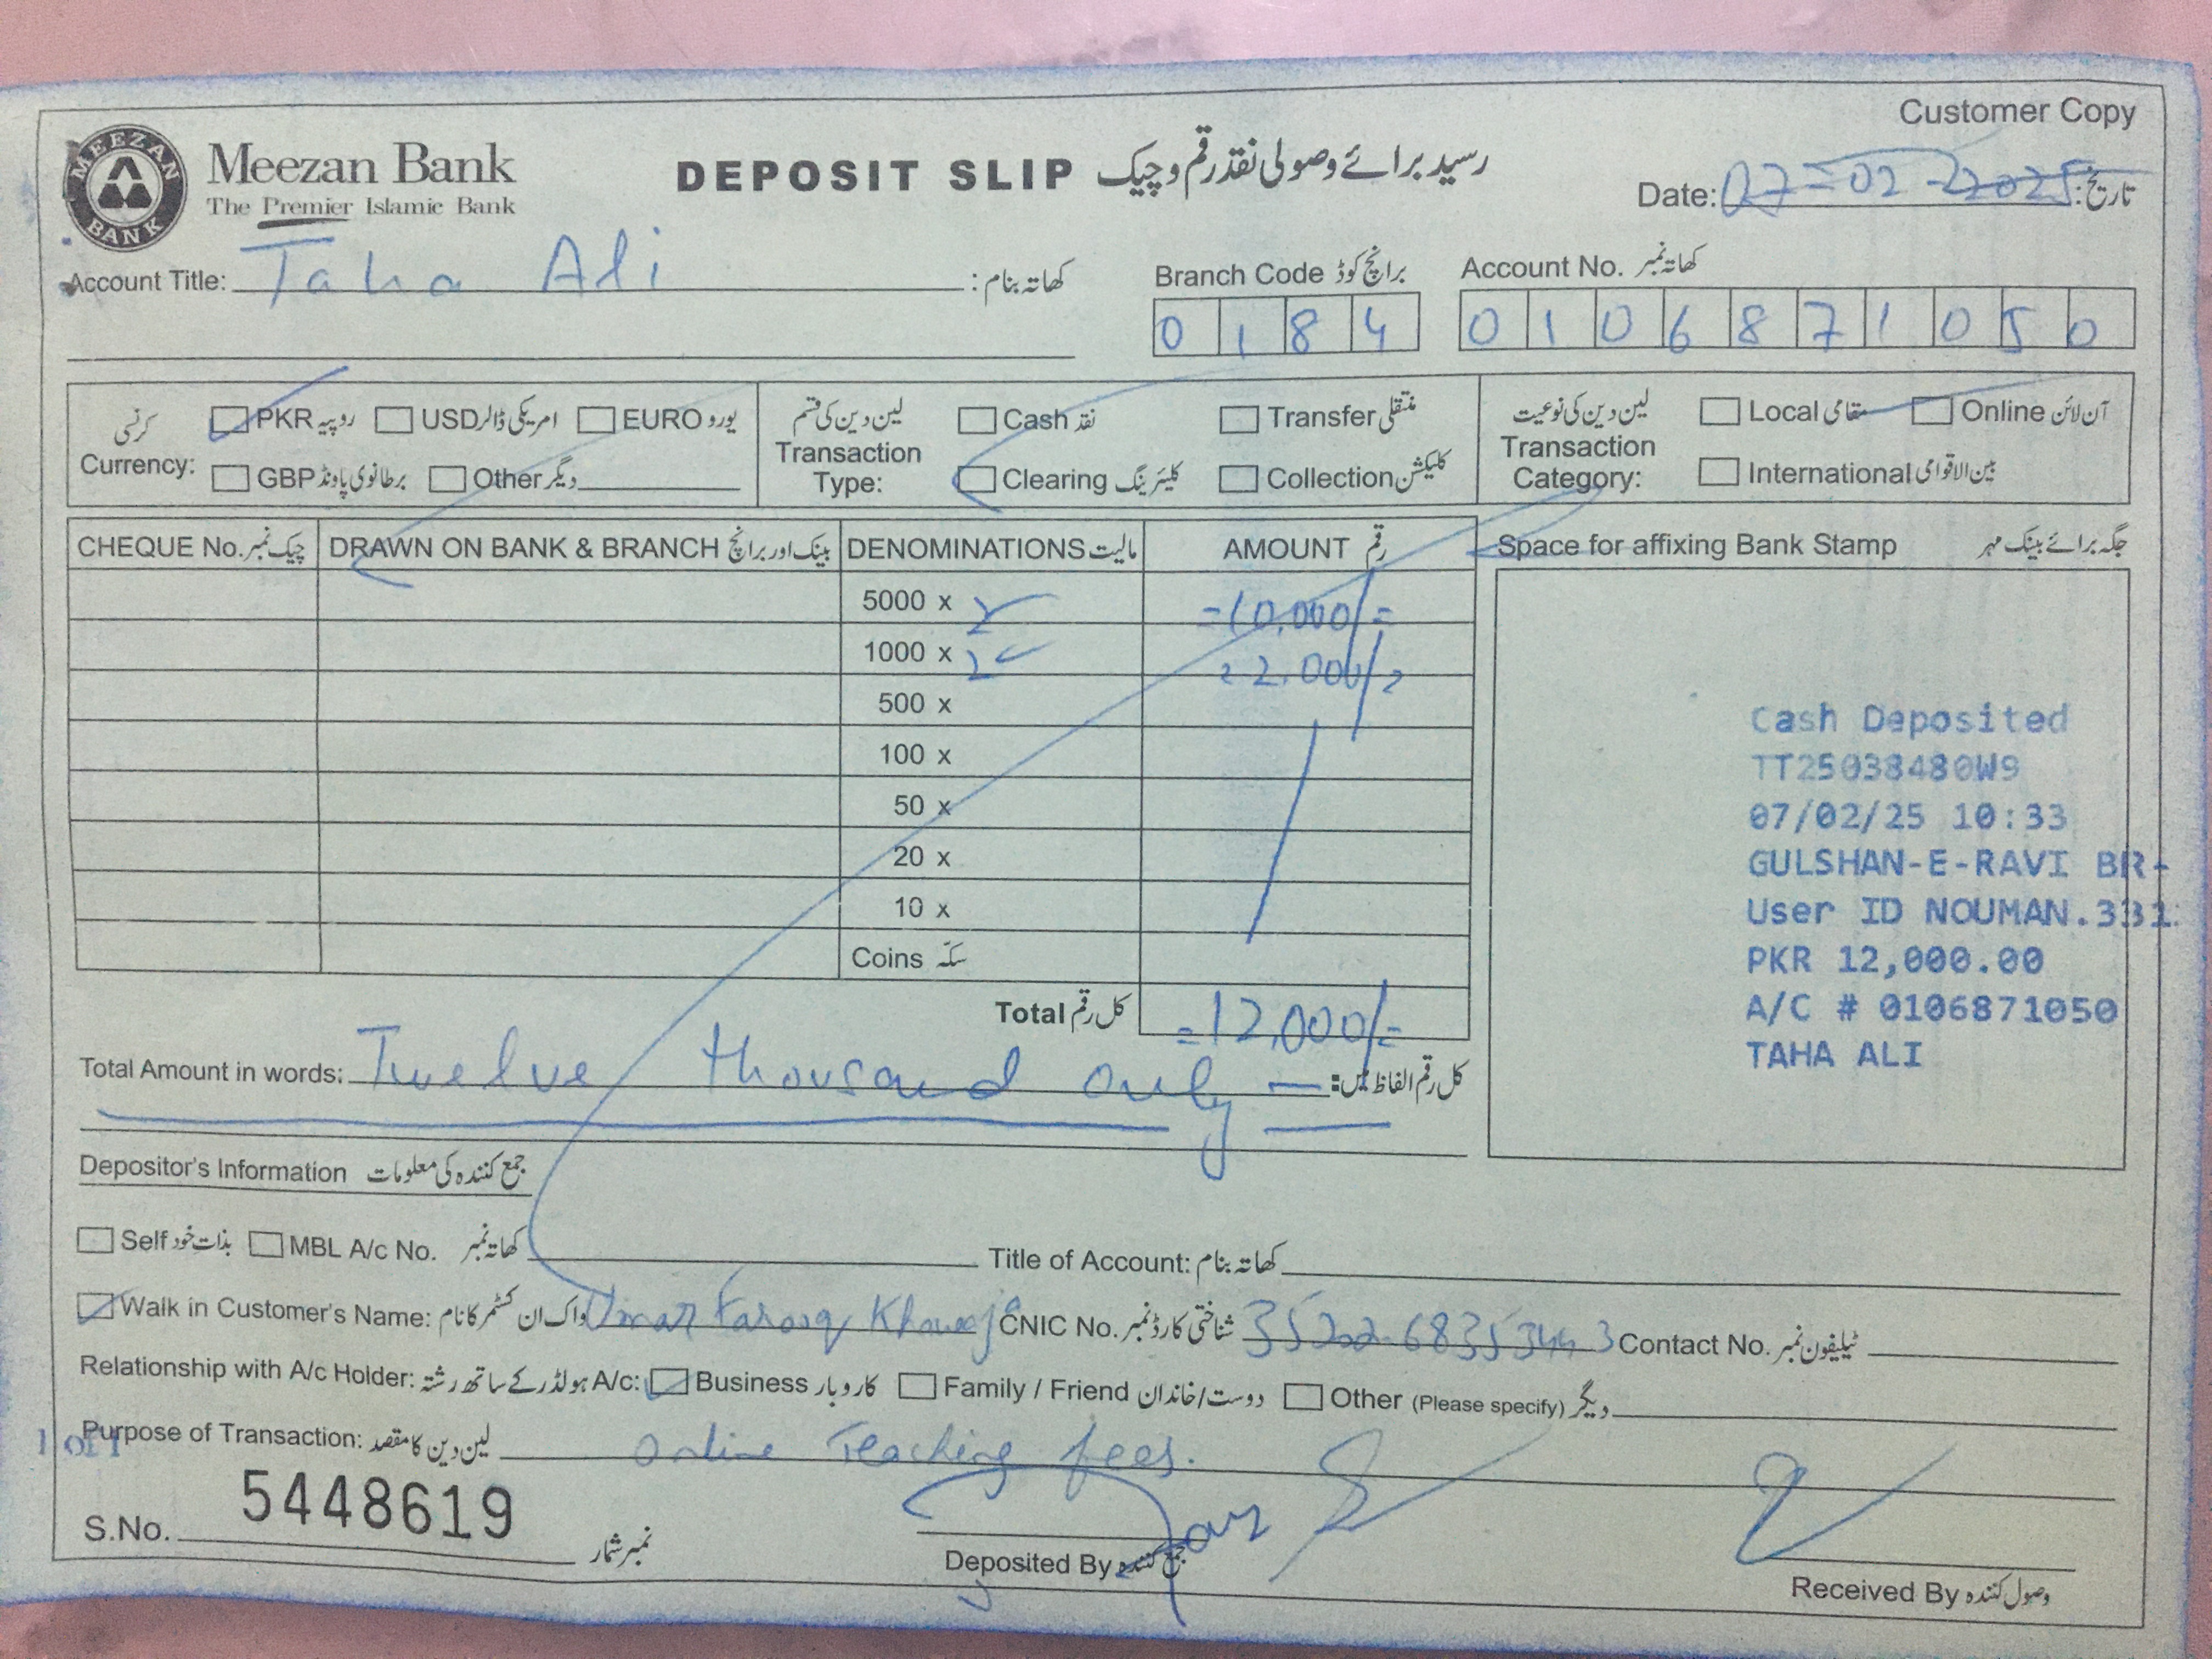 Customer Copy
Meezan Bank
The Premier Islamic Bank
MEEZAN BANK
DEPOSIT SLIP رسید برائے وصولی نقد رقم و چیک
Date: 07-02-2025 تاریخ:
Account Title: Taha Ali کھاتہ بنام:
Branch Code برانچ کوڈ
0184
Account No. کھاتہ نمبر
0106871050
کرنسی
Currency:
PKR روپیہ USD امریکی ڈالر EURO یورو
GBP برطانوی پاؤنڈ Other دیگر
لین دین کی قسم
Transaction Type:
Cash نقد Transfer منتقلی
Clearing کلیئرنگ Collection کلیکشن
لین دین کی نوعیت
Transaction Category:
Local مقامی Online آن لائن
International بین الاقوامی
CHEQUE No. چیک نمبر DRAWN ON BANK & BRANCH بینک اور برانچ DENOMINATIONS مالیت AMOUNT رقم
5000 x 2 =10,000/=
1000 x 2 = 2,000/=
500 x
100 x
50 x
20 x
10 x
Coins سکے
Total کل رقم =12,000/=
Space for affixing Bank Stamp جگہ برائے بینک مہر
Cash Deposited
TT25038480W9
07/02/25 10:33
GULSHAN-E-RAVI BR-
User ID NOUMAN.331
PKR 12,000.00
A/C # 0106871050
TAHA ALI
Total Amount in words: Twelve thousand only کل رقم الفاظ میں:
Depositor's Information جمع کنندہ کی معلومات
Self بذات خود MBL A/c No. کھاتہ نمبر Title of Account: کھاتہ بنام:
Walk in Customer's Name: واک ان کسٹمر کا نام: Farooq CNIC No. شناختی کارڈ نمبر Contact No. ٹیلیفون نمبر
Relationship with A/c Holder: کھاتہ ہولڈر کے ساتھ رشتہ A/c: Business کاروبار Family / Friend دوست/خاندان Other (Please specify) دیگر
Purpose of Transaction: لین دین کا مقصد: Online Teaching fees.
S.No. 5448619 نمبر شمار
Deposited By جمع کنندہ
Received By وصول کنندہ